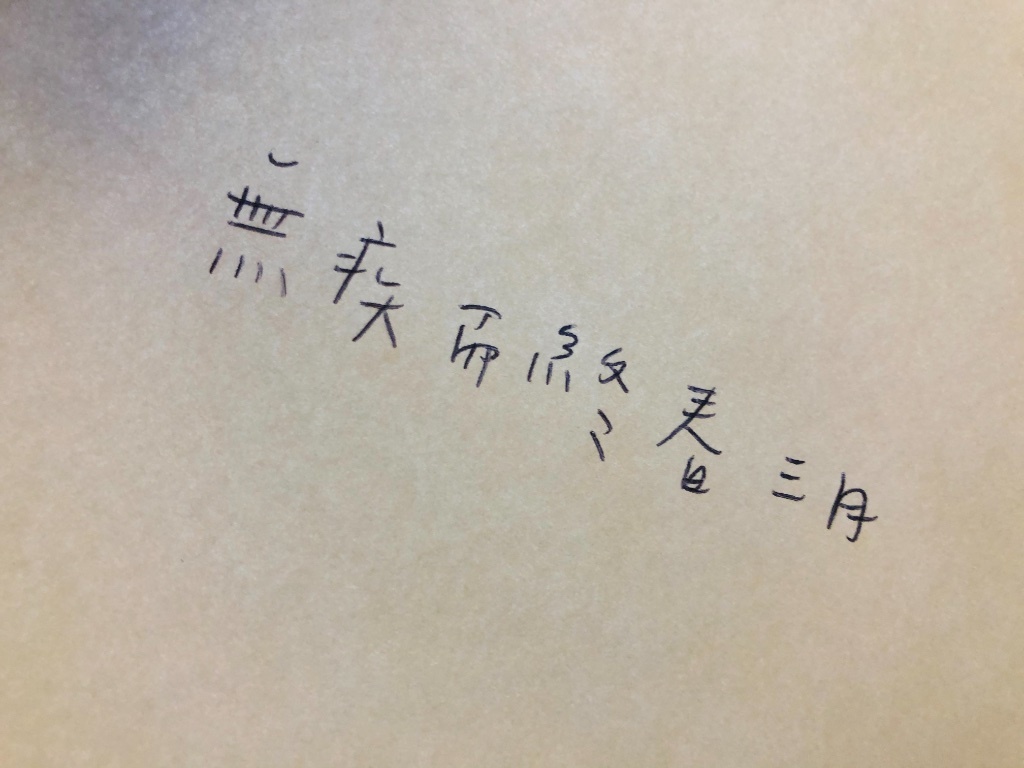 無疾而終春三月